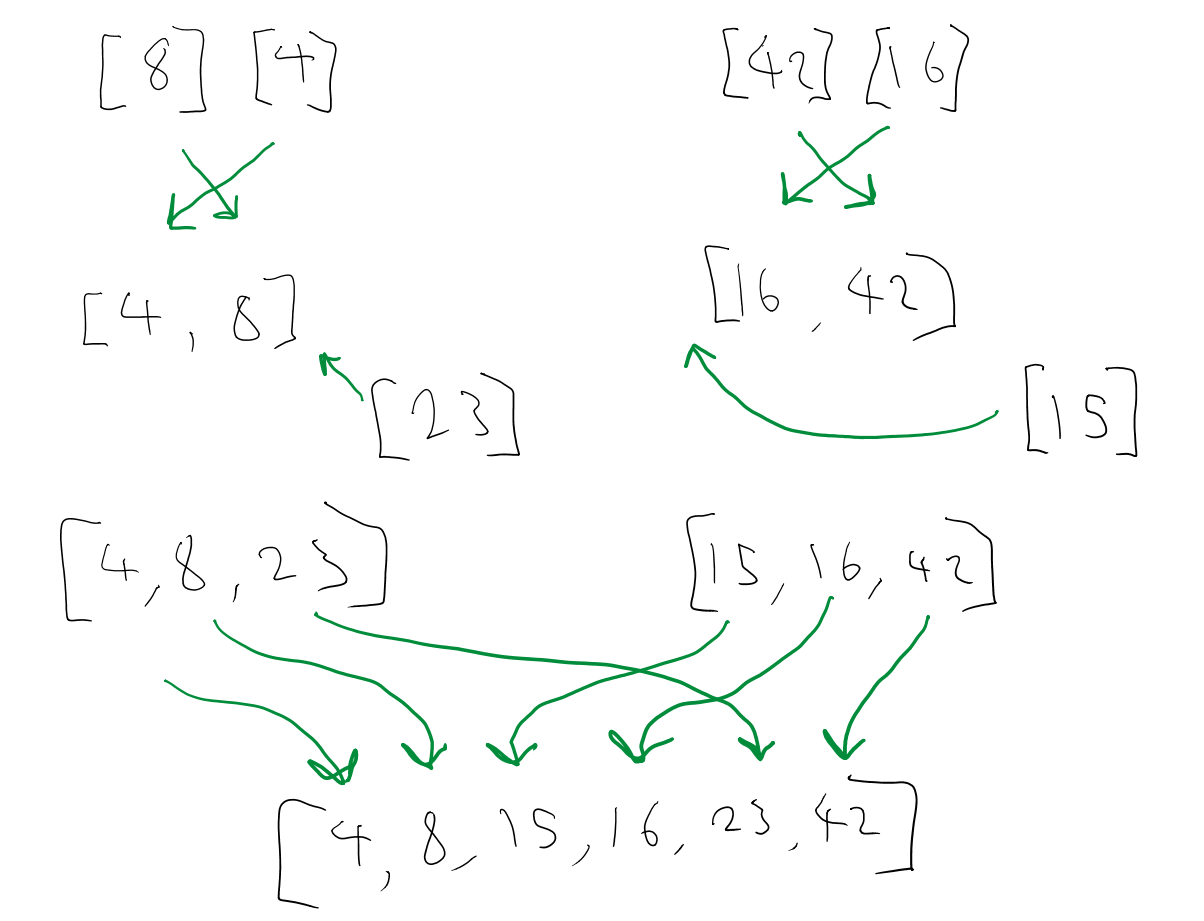 [8] [4] [42] [16]
[4, 8] [16, 42]
[23] [15]
[4, 8, 23] [15, 16, 42]
[4, 8, 15, 16, 23, 42]